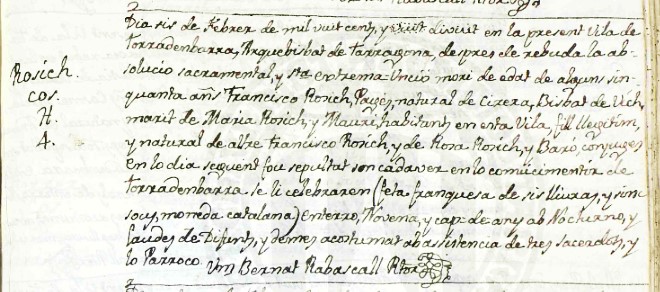 Dia sis de Febrer de mil vuit cents, y disvuit en la present Vila de
Torradenbarra, Arquebisbat de Tarragona, despres de rebuda la ab-
Rosich. solucio sacramental, y sta extrema-Uncio mori de edat de alguns sin-
cos. quanta añs Francisco Rosich, Pages, natural de Cirera, Bisbat de Vich,
H. marit de Maria Rosich, y Mauri, habitants en esta Vila, fill llegitim,
4. y natural de altre Francisco Rosich, y de Rosa Rosich, y Baró, conjuges,
en lo dia seguent fou sepultat son cadaver en lo comu cimentir de
Torradenbarra se li celebraren (feta franquesa de sis lliuras, y sinc
sous, moneda catalana) enterro, Novena, y cap de any ab Nocturno, y
Laudes de Difunts, y demes acostumat ab assistencia de tres sacerdots, y
lo Parroco. Bernat Rabascall Rtor.